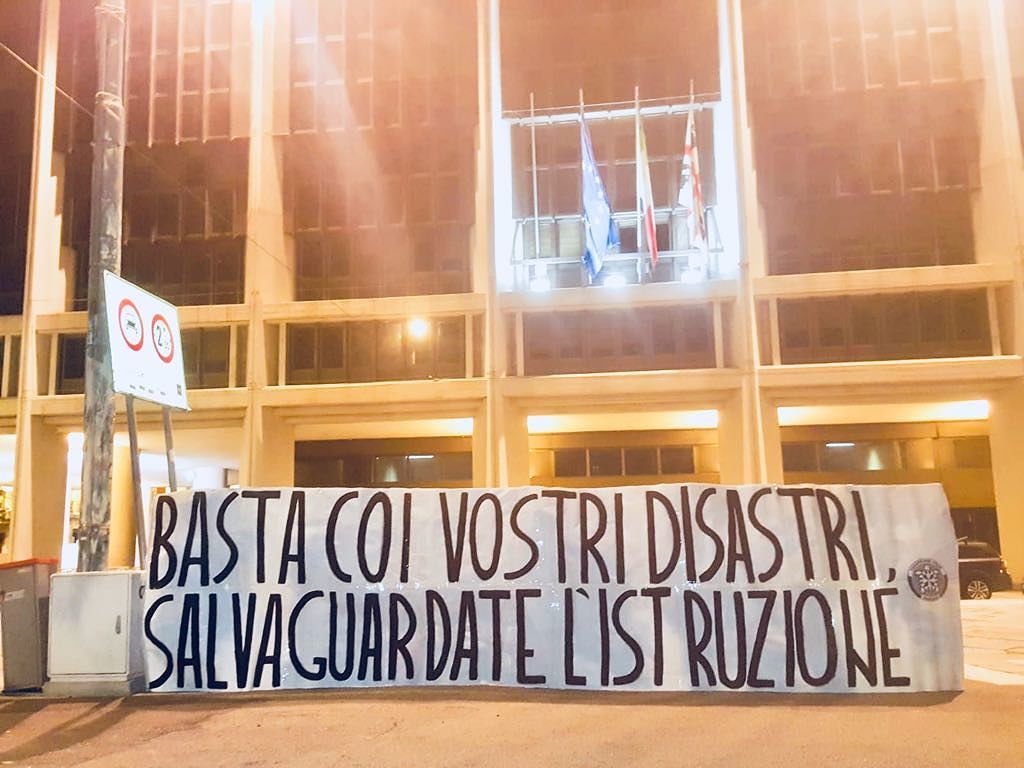 BASTA COI VOSTRI DISASTRI,
SALVAGUARDATE L'ISTRUZIONE